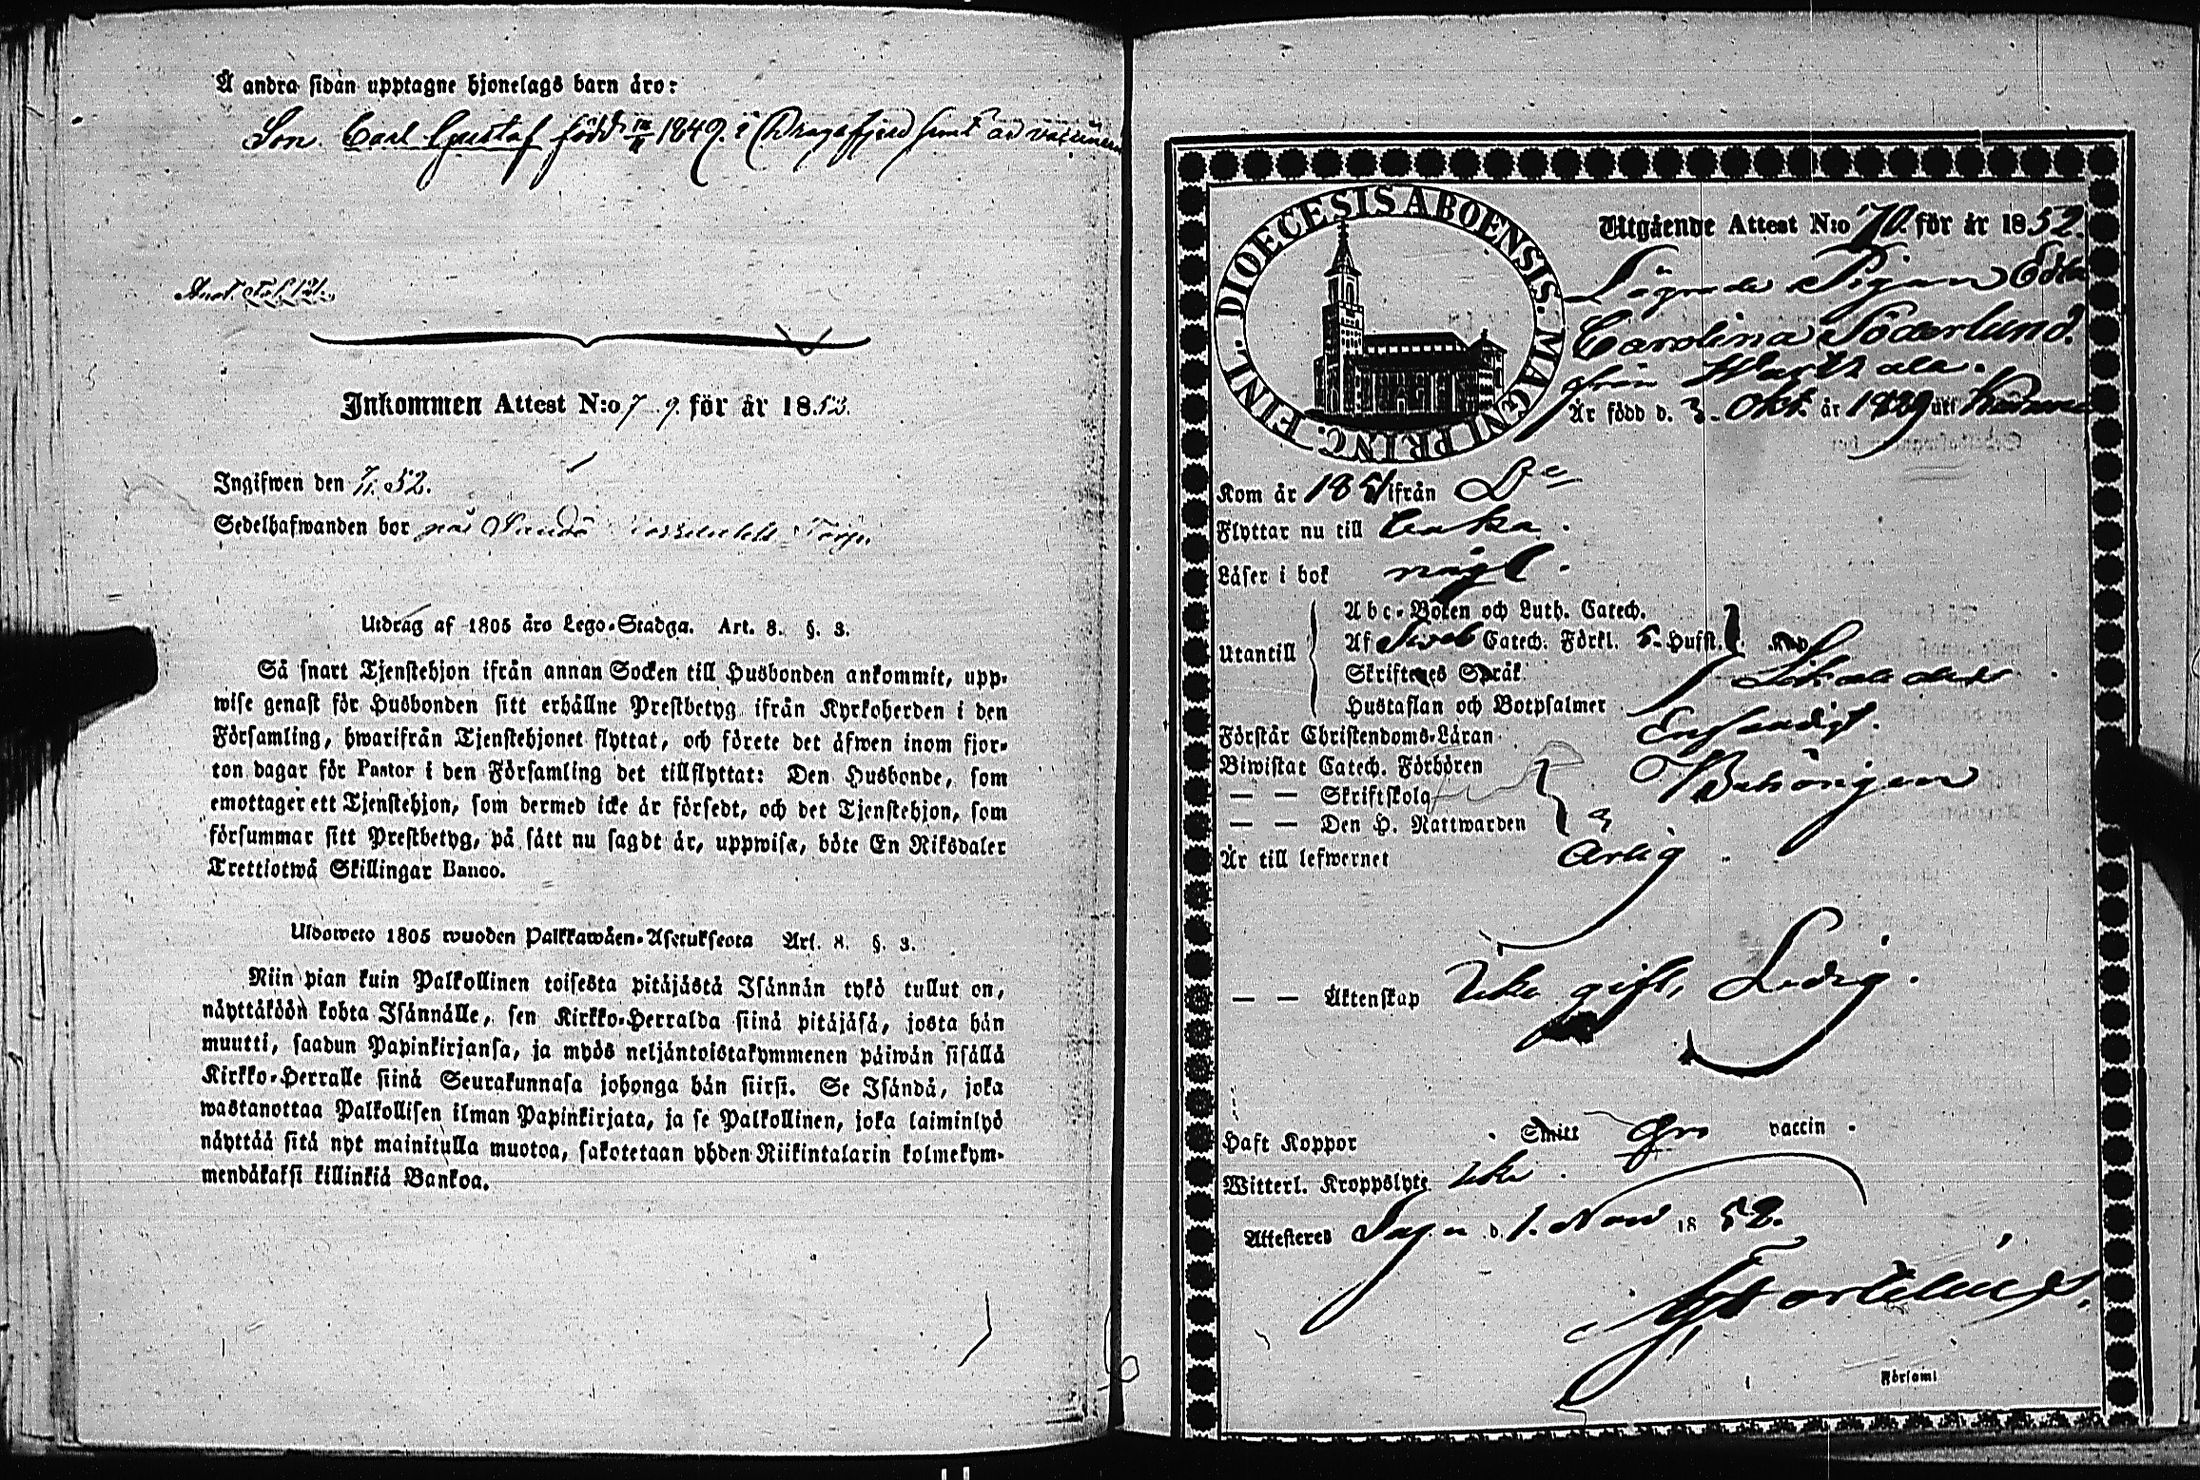 Å andra sidan upptagne hjonelags barn äro:
Son. Carl Gustaf född 1849. i Dragsfjerd samt är vaccinerad
Inkommen Attest N:o 79. för år 1852.
Ingifwen den 7/11 52.
Sedelhafwanden bor på
Utdrag af 1805 års Lego-Stadga. Art. 8. §. 3.
Så snart Tjenstehjon ifrån annan Socken till Husbonden ankommit, upp-
wise genast för Husbonden sitt erhållne Prestbetyg ifrån Kyrkoherden i den
Församling, hwarifrån Tjenstehjonet flyttat, och förete det äfwen inom fjor-
ton dagar för Pastor i den Församling det tillflyttat: Den Husbonde, som
emottager ett Tjenstehjon, som dermed icke är försedt, och det Tjenstehjon, som
försummar sitt Prestbetyg, på sätt nu sagdt är, uppwisa, böte En Riksdaler
Trettiotwå Skillingar Banco.
Ulosweto 1805 wuoden Palkkawäen-Asetuksesta Art. 8. §. 3.
Niin pian kuin Palkollinen toisesta pitäjästä Isännän tykö tullut on,
näyttäköön kohta Isännälle, sen Kirkko-Herralda siinä pitäjäsä, josta hän
muutti, saadun Papinkirjansa, ja myös neljäntoistakymmenen päiwän sisällä
Kirkko-Herralle siinä Seurakunnasa johonga hän siirsi. Se Isändä, joka
wastanottaa Palkollisen ilman Papinkirjata, ja se Palkollinen, joka laiminlyö
näyttää sitä nyt mainitulla muotoa, sakotetaan yhden Riikintalarin kolmekym-
mendäkaksi killinkiä Bankoa.
DIOECESIS ABOENSIS. MAGNI PRINC. FINL.
Utgående Attest N:o 70. för år 1852.
Pigan Edla
Carolina Söderlund.
från
Är född d. 3. Okt. år 1829 uti
Kom år 1851 ifrån D:o
Flyttar nu till
Läser i bok nöjgt.
Utantill
Abc-Boken och Luth. Catech.
Af Catech. Förkl. 5. Hufst.
Skriftenes Språk
Hustaflan och Botpsalmer
Förstår Christendoms-Läran Enfaldigt.
Biwistat Catech. Förhören
— — Skriftskola
— — Den H. Nattwarden
Behörigen
Är till lefwernet Ärlig
— — Äktenskap Icke gift, Ledig.
Haft Koppor Smitt vaccin.
Witterl. Kroppslyte Icke
Attesteres d. 1. Nov 1852.
Församl